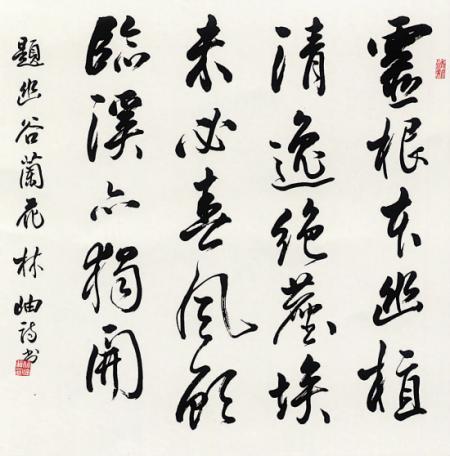 靈根本幽植
清逸絶塵埃
未必喜風顧
臨溪亦獨開
題幽谷蘭花 林岫詩書